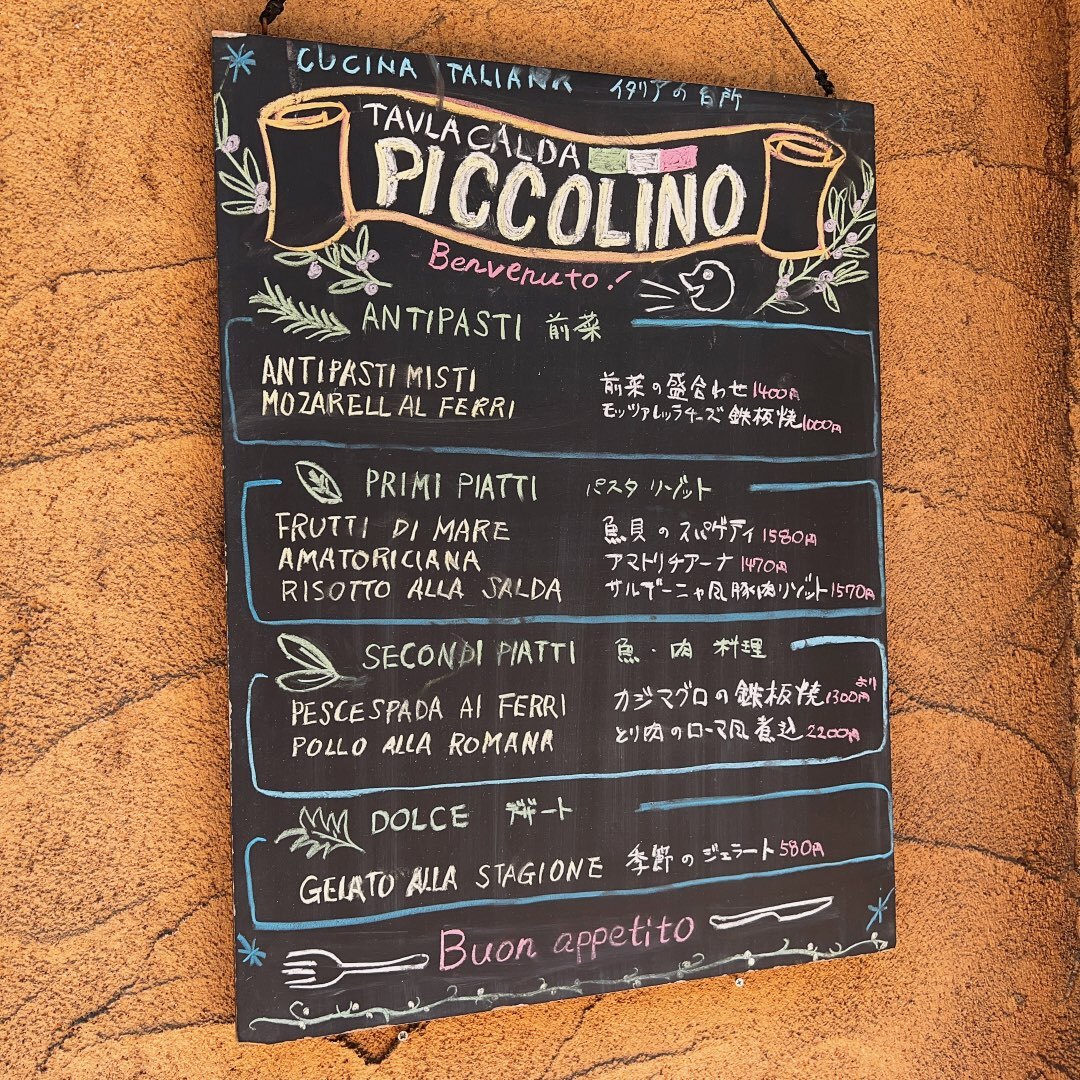 CUCINA ITALIANA イタリアの台所
TAVLA CALDA
PICCOLINO
Benvenuto!
ANTIPASTI 前菜
ANTIPASTI MISTI 前菜の盛合わせ 1400円
MOZARELL AL FERRI モッツァレッラチーズ鉄板焼 1000円
PRIMI PIATTI パスタ リゾット
FRUTTI DI MARE 魚貝のスパゲティ 1580円
AMATORICIANA アマトリチアーナ 1470円
RISOTTO ALLA SALDA サルデーニャ風豚肉リゾット 1570円
SECONDI PIATTI 魚・肉 料理
PESCESPADA AI FERRI カジマグロの鉄板焼 1300円より
POLLO ALLA ROMANA とり肉のローマ風煮込 2200円
DOLCE デザート
GELATO ALLA STAGIONE 季節のジェラート 580円
Buon appetito